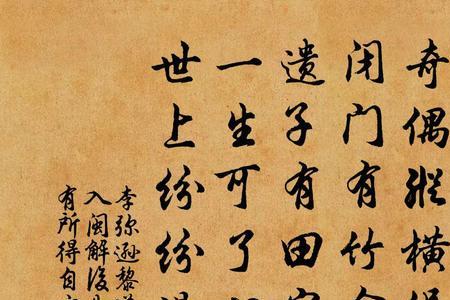 奇偶纵横
闭门有竹
遗子有田
一生可了
世上纷纷
李弥逊黎
入闽解后
有所得自